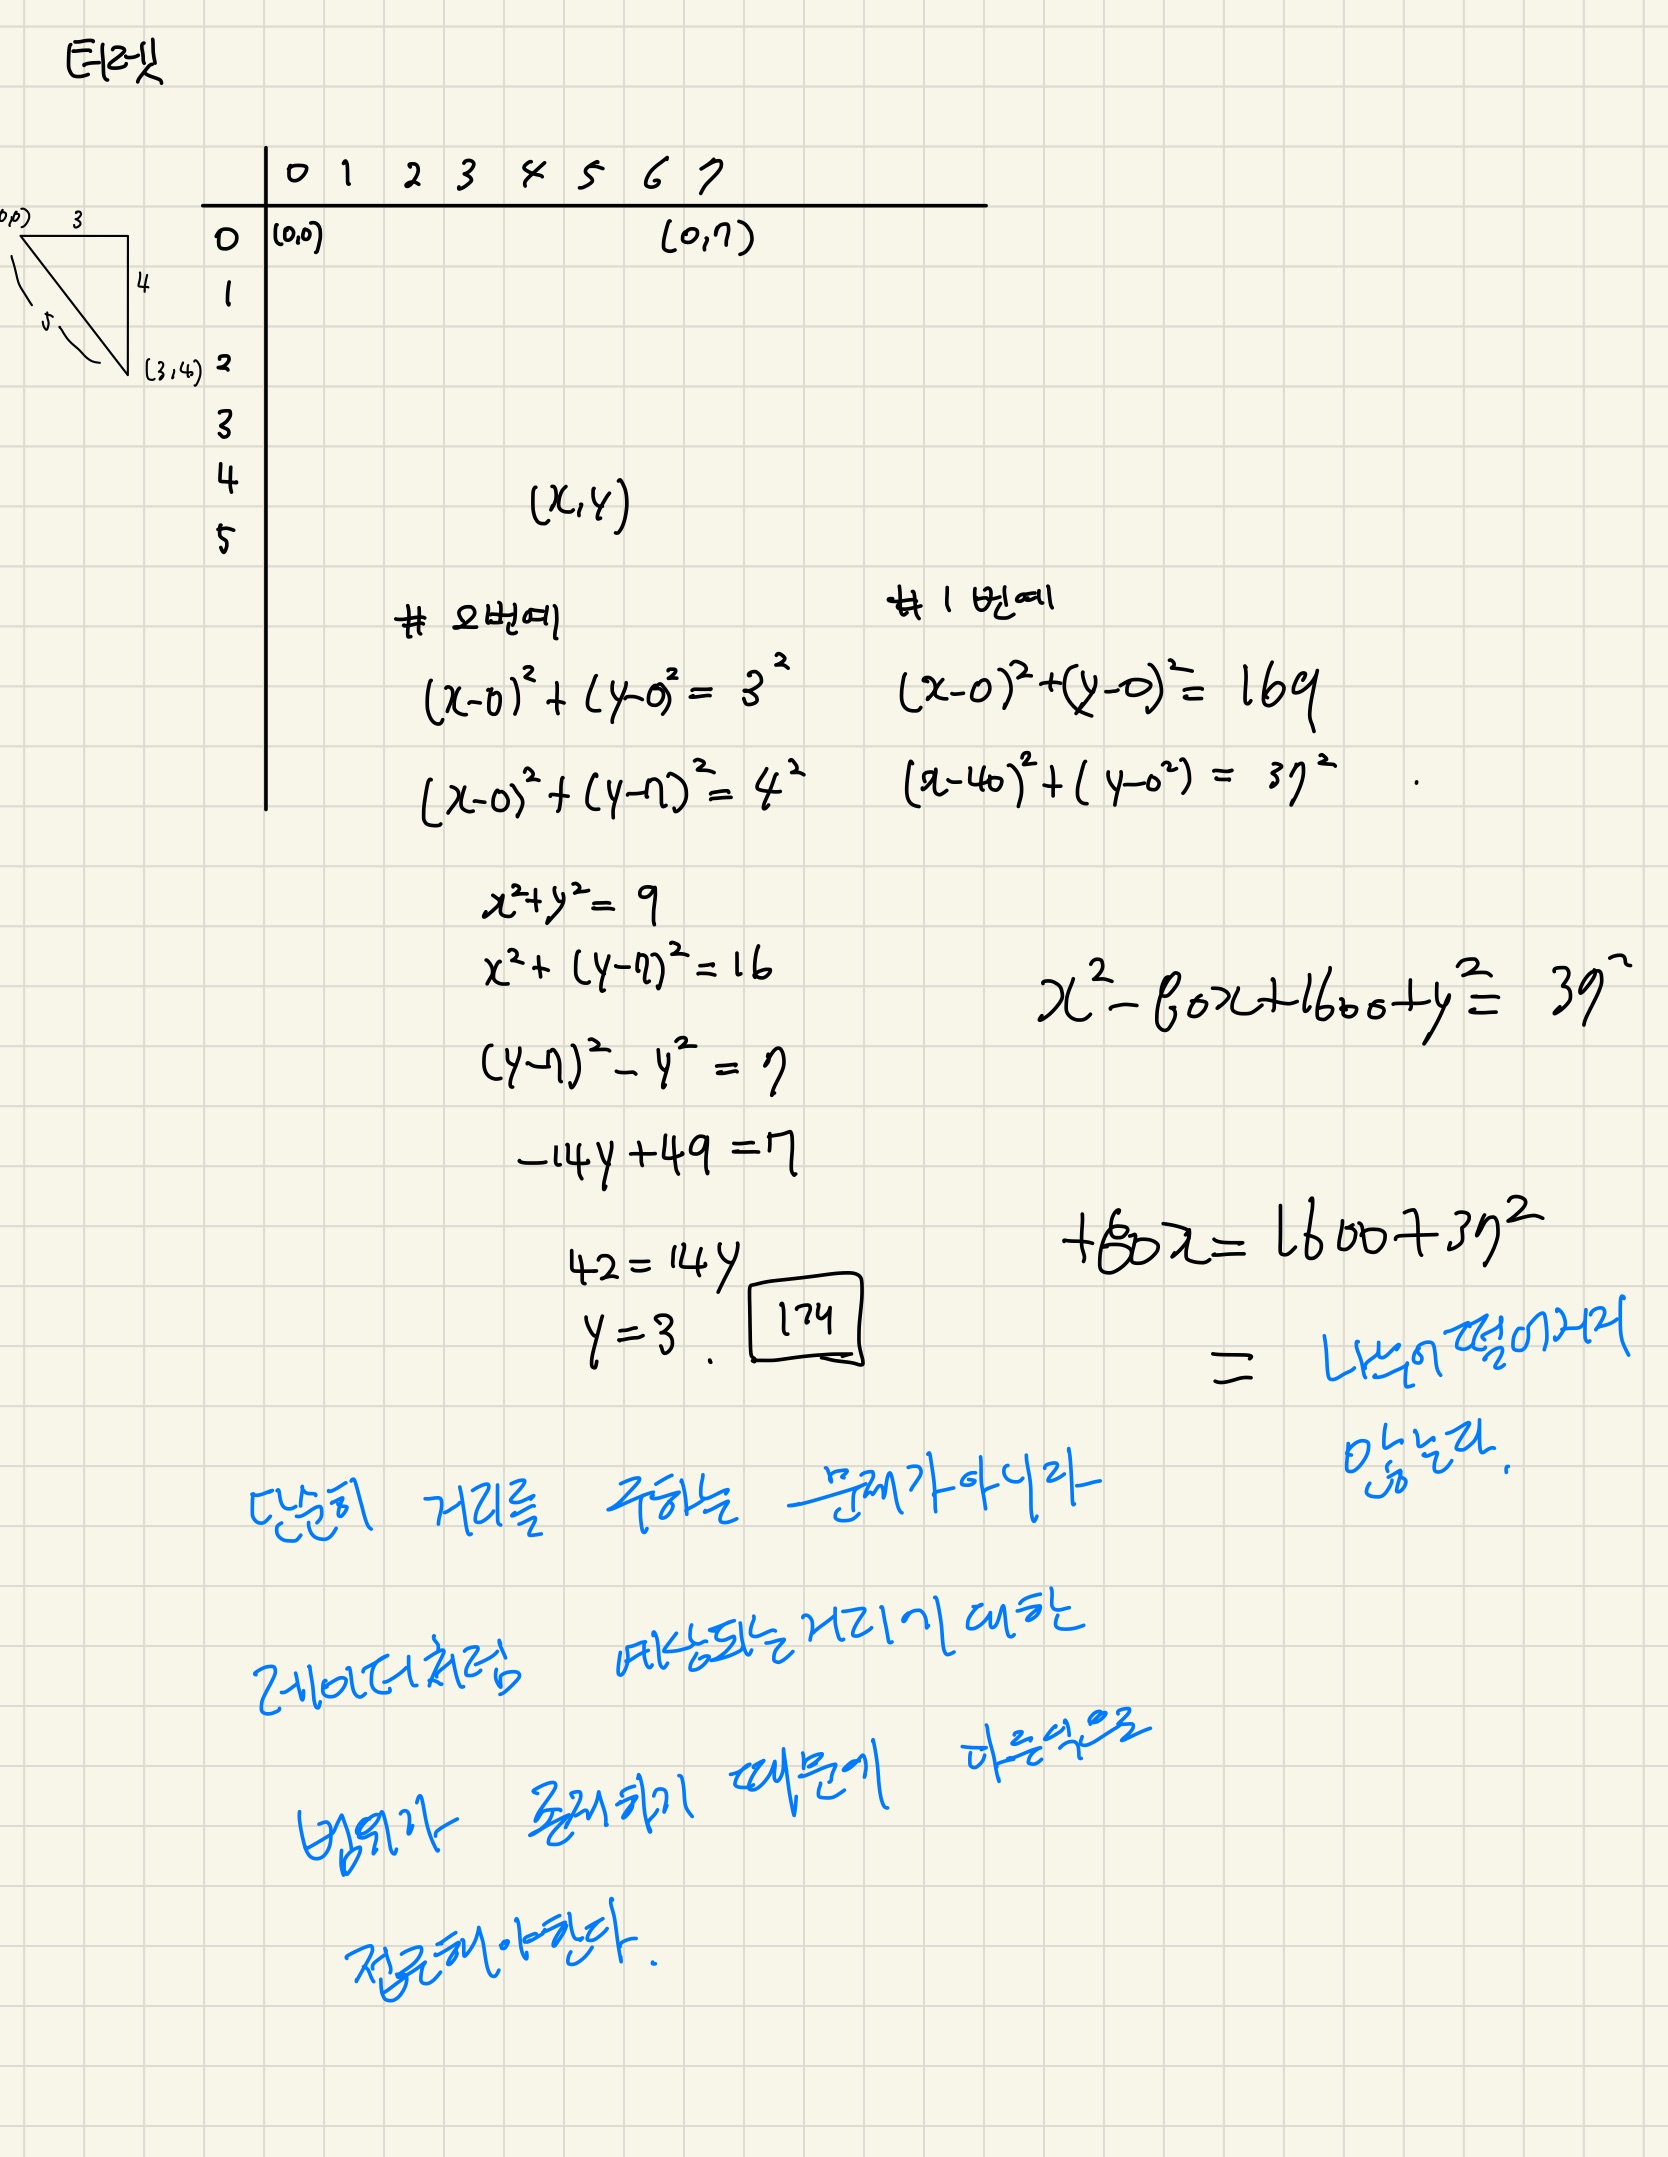 터렛
0 1 2 3 4 5 6 7
0 (0,0) (0,7)
1
2
3
4
5
3
4
5
(3,4)
(x,y)
# 0번예
(x-0)² + (y-0)² = 3²
(x-0)² + (y-7)² = 4²
x²+y² = 9
x² + (y-7)² = 16
(y-7)² - y² = 7
-14y+49 = 7
42 = 14y
y = 3 .
174
# 1번예
(x-0)²+(y-0)² = 169
(x-40)²+(y-0²) = 37² .
x²-80x+1600+y² = 37²
+80x = 1600+37²
= 나누어떨어지지
않는다.
단순히 거리를 구하는 문제가아니라
레이더처럼 예상되는거리에 대한
범위가 존재하기 때문에 다른식으로
접근해야한다.